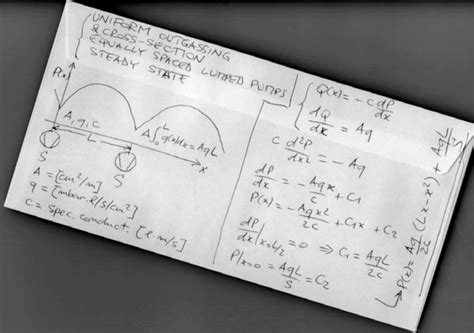 UNIFORM OUTGASSING
& CROSS-SECTION
EQUALLY SPACED LUMPED PUMPS
STEADY STATE
P(x)
A, q, c
L
A∫₀ᴸ q(x)dx = AqL
x
S
S
A = [cm²/m]
q = [mbar·ℓ/s/cm²]
c = spec. conduct. [ℓ·m/s]
Q(x) = -c dP/dx
dQ/dx = Aq
c d²P/dx² = -Aq
dP/dx = -Aqx/c + C₁
P(x) = -Aqx²/2c + C₁x + C₂
dP/dx|x=L/2 = 0 ⇒ C₁ = AqL/2c
P|x=0 = AqL/S = C₂
P(x) = Aq/2c (Lx-x²) + AqL/S